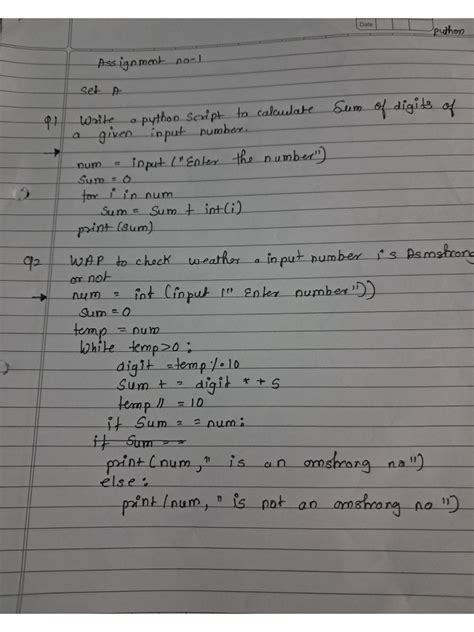 Date
python
Assignment no-1
Set A
Q1 Write a python Script to calculate Sum of digits of
a given input number.
→ num = input ("Enter the number")
Sum = 0
for i in num
Sum = Sum + int(i)
print (sum)
Q2 WAP to check weather a input number is Asmstrong
or not
→ num = int (input (" Enter number"))
Sum = 0
temp = num
While temp>0:
digit = temp % 10
Sum + = digit * * 5
temp // = 10
if Sum = = num:
if Sum = =
print (num," is an omstrong no")
else:
print (num, " is not an omstrong no ")